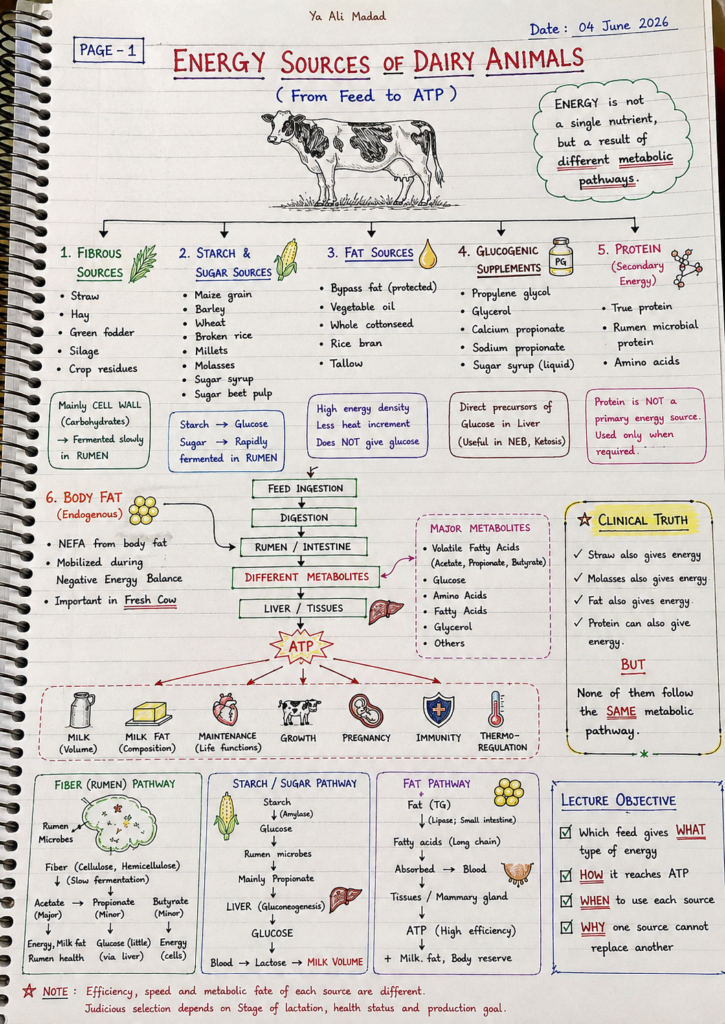 Ya Ali Madad
Date: 04 June 2026
PAGE - 1
ENERGY SOURCES OF DAIRY ANIMALS
(From Feed to ATP)
ENERGY is not
a single nutrient,
but a result of
different metabolic
pathways.
1. FIBROUS
SOURCES
• Straw
• Hay
• Green fodder
• Silage
• Crop residues
Mainly CELL WALL
(Carbohydrates)
→ Fermented slowly
in RUMEN
2. STARCH &
SUGAR SOURCES
• Maize grain
• Barley
• Wheat
• Broken rice
• Millets
• Molasses
• Sugar syrup
• Sugar beet pulp
Starch → Glucose
Sugar → Rapidly
fermented in RUMEN
3. FAT SOURCES
• Bypass fat (protected)
• Vegetable oil
• Whole cottonseed
• Rice bran
• Tallow
High energy density
Less heat increment
Does NOT give glucose
4. GLUCOGENIC
SUPPLEMENTS
PG
• Propylene glycol
• Glycerol
• Calcium propionate
• Sodium propionate
• Sugar syrup (liquid)
Direct precursors of
Glucose in Liver
(Useful in NEB, Ketosis)
5. PROTEIN
(Secondary
Energy)
• True protein
• Rumen microbial
protein
• Amino acids
Protein is NOT a
primary energy source.
Used only when
required.
6. BODY FAT
(Endogenous)
• NEFA from body fat
• Mobilized during
Negative Energy Balance
• Important in Fresh Cow
FEED INGESTION
DIGESTION
RUMEN / INTESTINE
DIFFERENT METABOLITES
LIVER / TISSUES
ATP
MAJOR METABOLITES
• Volatile Fatty Acids
(Acetate, Propionate, Butyrate)
• Glucose
• Amino Acids
• Fatty Acids
• Glycerol
• Others
CLINICAL TRUTH
✓ Straw also gives energy
✓ Molasses also gives energy
✓ Fat also gives energy.
✓ Protein can also give
energy.
BUT
None of them follow
the SAME metabolic
pathway.
MILK
(Volume)
MILK FAT
(Composition)
MAINTENANCE
(Life functions)
GROWTH
PREGNANCY
IMMUNITY
THERMO-
REGULATION
FIBER (RUMEN) PATHWAY
Rumen
Microbes
Fiber (Cellulose, Hemicellulose)
↓ (Slow fermentation)
Acetate → Propionate Butyrate
(Major) (Minor) (Minor)
↓ ↓ ↓
Energy, Milk fat Glucose (little) Energy
Rumen health (via liver) (cells)
STARCH / SUGAR PATHWAY
Starch
↓ (Amylase)
Glucose
↓
Rumen microbes
↓
Mainly Propionate
↓
LIVER (Gluconeogenesis)
↓
GLUCOSE
↓
Blood → Lactose → MILK VOLUME
FAT PATHWAY
Fat (TG)
↓ (Lipase; Small intestine)
Fatty acids (Long chain)
↓
Absorbed → Blood
↓
Tissues / Mammary gland
↓
ATP (High efficiency)
↓
+ Milk. fat, Body reserve
LECTURE OBJECTIVE
☑ Which feed gives WHAT
type of energy
☑ HOW it reaches ATP
☑ WHEN to use each source
☑ WHY one source cannot
replace another
☆ NOTE : Efficiency, speed and metabolic fate of each source are different.
Judicious selection depends on Stage of lactation, health status and production goal.